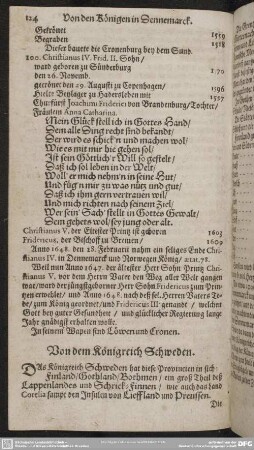 124 Von den Königen in Dennemarck.
Gekrönet 1559
Begraben 1518
Dieser bauete die Cronenburg bey dem Sund.
100. Christianus IV. Frid. II. Sohn/
ward geboren zu
den 26. Novemb. 1570
gecrönet den 29. Augusti zu Copenhagen/ 1596
Hielte Beylager zu Hadersleben mit 1597
Churfürst Joachimi Friderici von Brandenburg/Tochter/
Fräulein Anna Catharina.
Mein Glück stell ich in Gottes Hand/
Dem alle Ding recht sind bekandt/
Der wird es schick'n und machen wol/
Wie es mit mir hie gehen sol/
Ist sein Göttlich'r Will so gestelt/
Daß ich sol leben in der Welt/
Woll' er mich nehm'n in seine Hut/
Und füg'n mir zu was nütz und gut/
Daß ich ihm gern vertrauen wil/
Und mich richten nach seinem Ziel/
Wer sein' Sach' stellt in Gottes Gewalt/
Dem gehets wol/sey jung oder alt.
Christianus V. der Elteste Printz ist geboren 1603
Fridericus, der Bischoff zu Bremen/ 1609
Anno 1648. den 28. Februarii nahm ein seliges Ende Chri-
stianus IV. in Dennemarck und Norwegen König/ ætat. 78.
Weil nun Anno 1647. der älteste Herr Sohn Printz Christi-
anus V. vor dem Herrn Vater den Weg aller Welt gangen
war/ward der jüngste Herr Sohn Fridericus zum
Printzen erwehlet/ und Anno 1648. nach des sel. Herrn Vaters To-
de/ zum König geordnet/und Fridericus III. genannt/ welchen
Gott bey guter Gesundheit / und glücklicher Regierung lange
Jahr gnädigst erhalten wolle.
In seinem Wapen sind Löwen und Cronen.
Von dem Königreich Schweden.
DAs Königreich Schweden hat diese Provincien in sich:
Finland/Gothland/Bothmen/ ein groß Theil des
Lappenlandes und Schrick-Finnen/ wie auch das Land
Corelia sampt den Insulen von Lieffland und Preussen.
Die